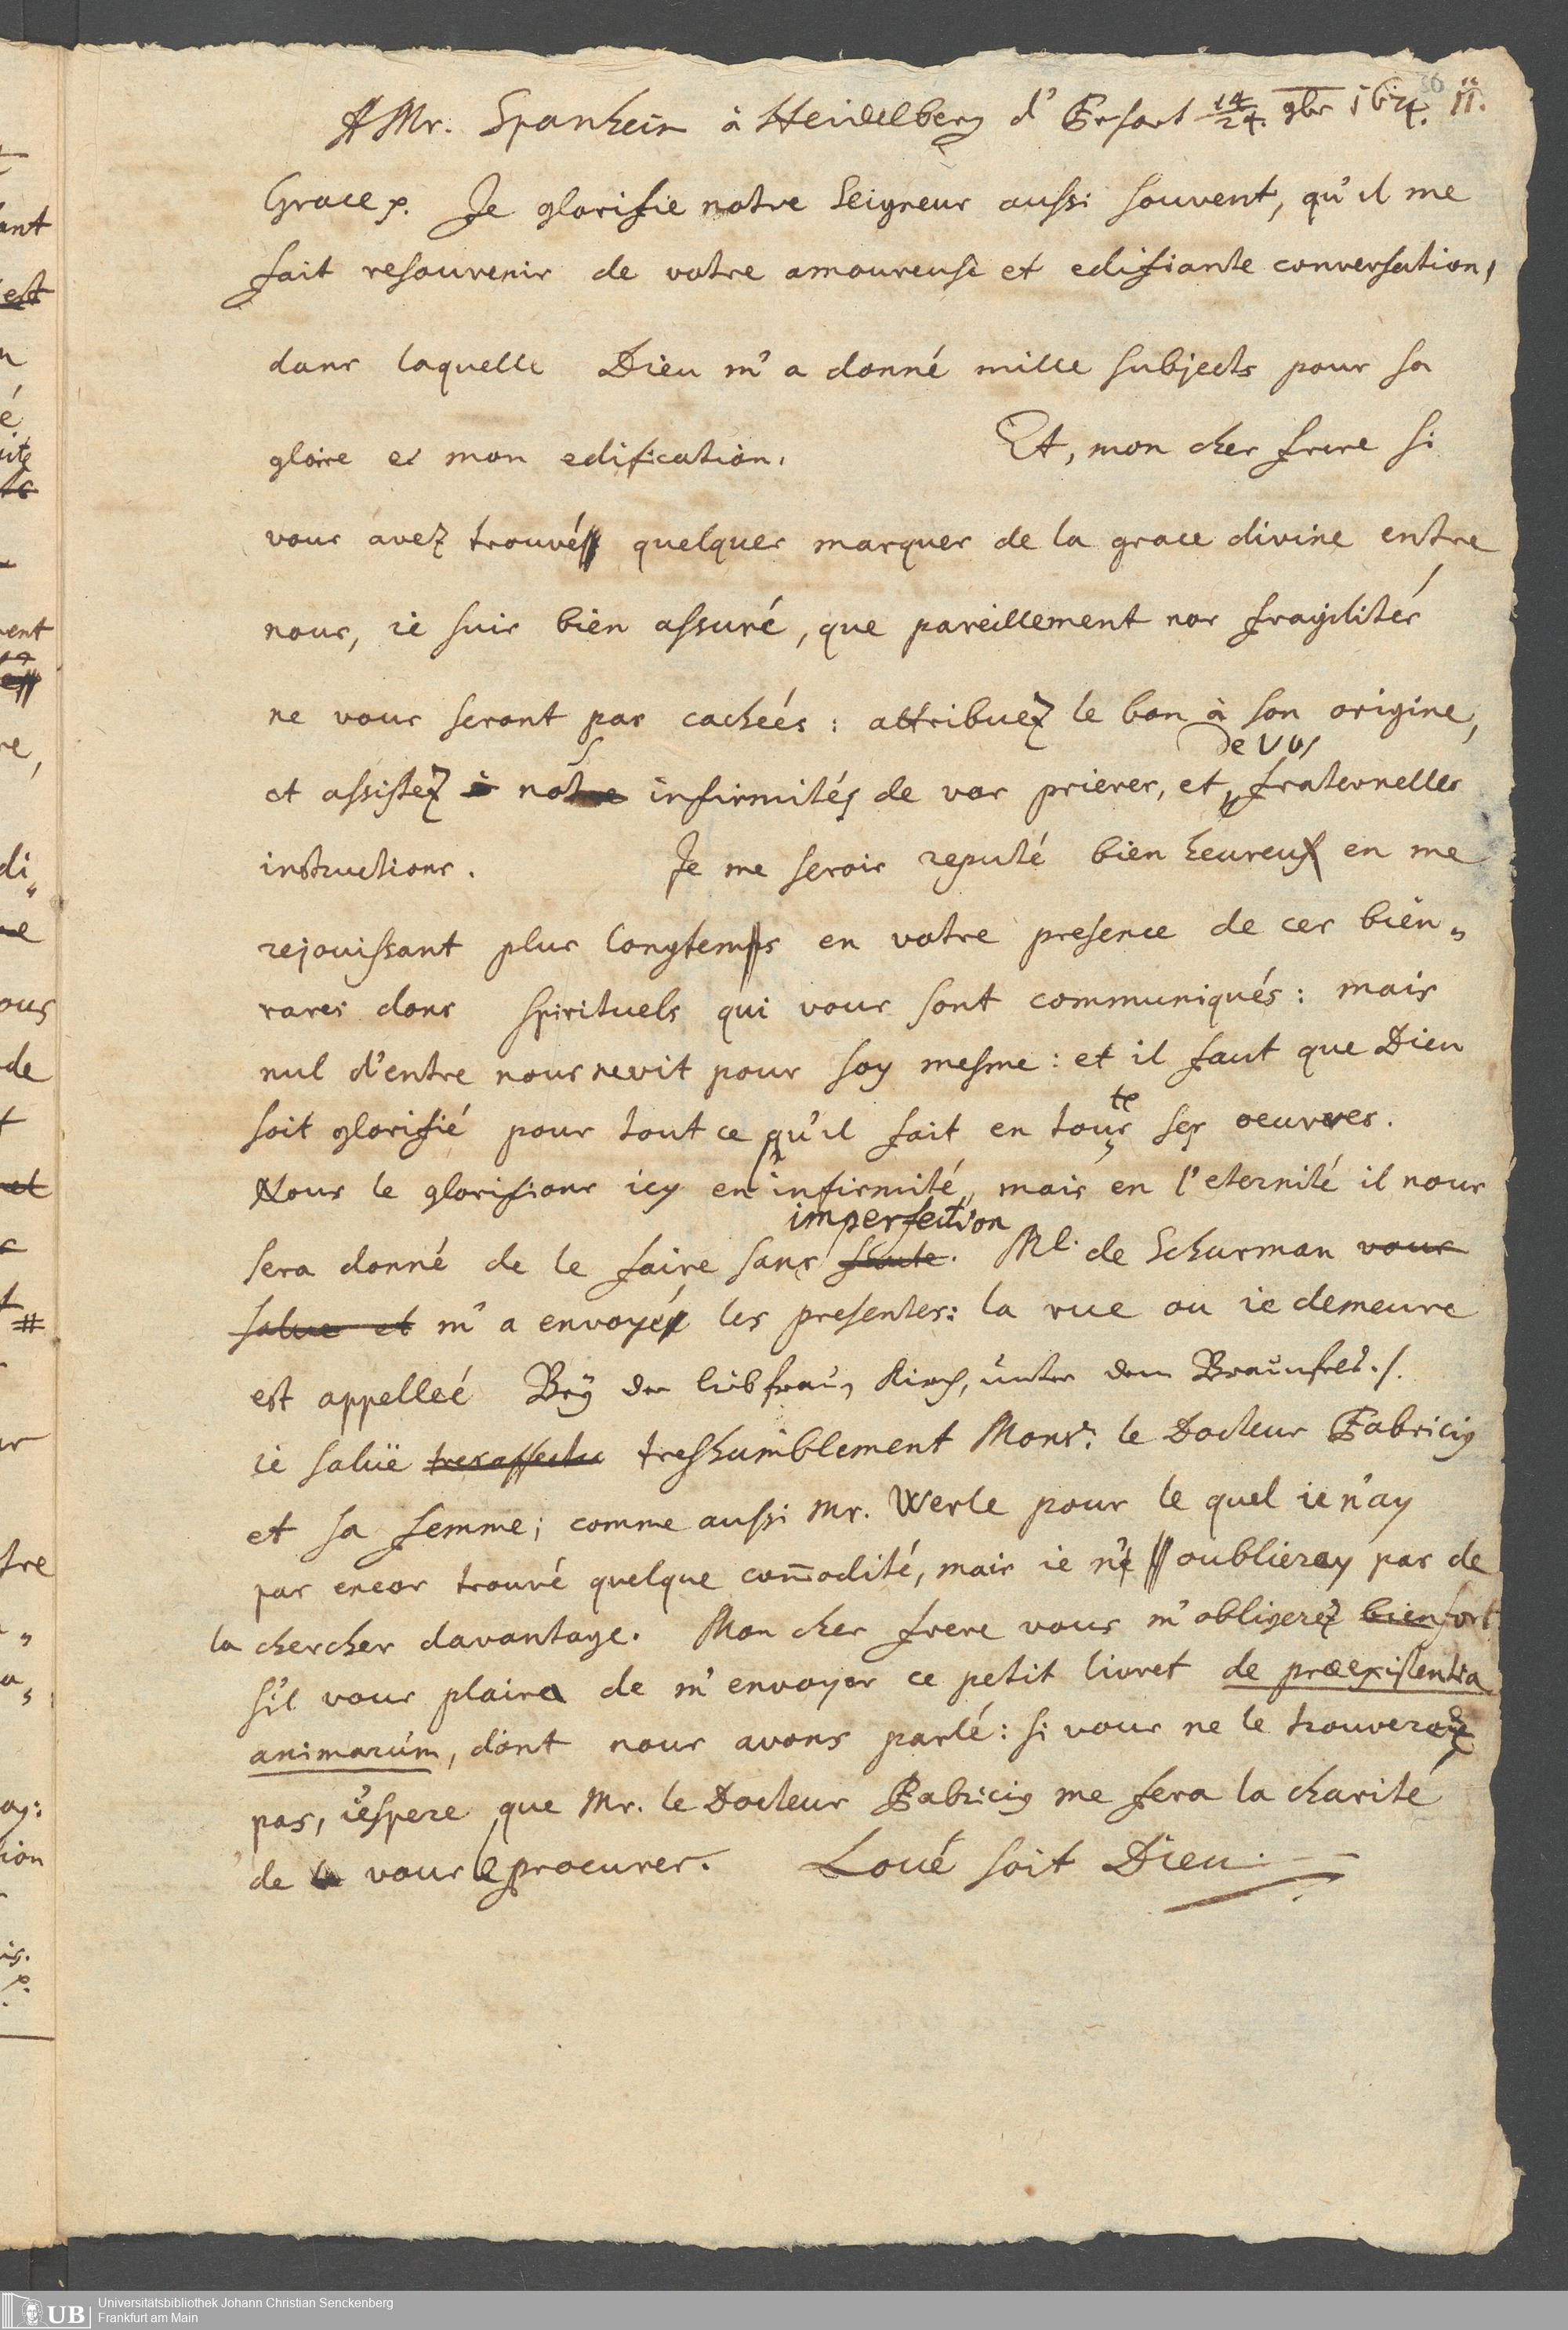 A Mr. Spanheim à Heidelberg d' Erfort 14/24. 9br 1674. 11.
56
Grace p. Je glorifie notre Seigneur aussi souvent, qu'il me
fait resouvenir de votre amoureuse et edifiante conversation,
dans laquelle Dieu m'a donné mille subjects pour sa
gloire et mon edification. Et, mon cher frere si
vous avez trouvé quelques marques de la grace divine entre
nous, ie suis bien assuré, que pareillement nos fragilités
ne vous seront pas cacheés : attribuez le bon à son origine,
de vos
et assistez à nos infirmités de vos prieres, et fraternelles
instructions. Je me serois reputé bien heureux en me
rejouissant plus longtemps en votre presence de ces bien„
rares dons spirituels qui vous sont communiqués : mais
nul d'entre nous ne vit pour soy mesme : et il faut que Dieu
te
soit glorifié pour tout ce qu'il fait en tous ses oeuvres.
Nous le glorifions icy en infirmité, mais en l'eternité il nous
imperfection
sera donné de le faire sans faute. Ml. de Schurman vous
salue et m'a envoyé les presentes : la rue ou ie demeure
est appelleé Bey der liebfrauen Kirch, unter dem Braunfels./.
ie salüe tresaffectu treshumblement Monsr. le Docteur Fabricius
et sa femme ; comme aussi Mr. Werle pour le quel ie n'ay
pas encor trouvé quelque com̄odité, mais ie n' oublieray pas de
la chercher davantage. Mon cher frere vous m'obligerez bien fort
s'il vous plaira de m'envoyer ce petit livret de præexistentia
animarum, dont nous avons parlé : si vous ne le trouverez
pas, i'espere que Mr. le Docteur Fabricius me fera la charité
de vous le procurer. Loué soit Dieu.
UB Universitätsbibliothek Johann Christian Senckenberg
Frankfurt am Main